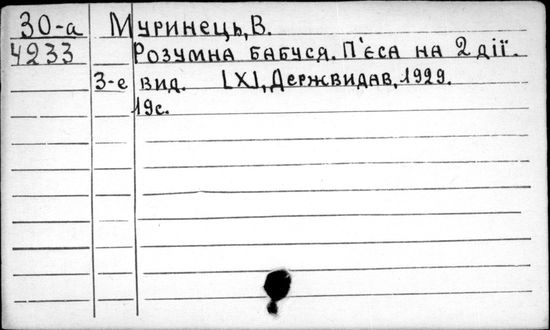 30-а Муринець, В.
4233 Розумна бабуся. П'єса на 2 дії.
3-е вид. [Х], Держвидав, 1929.
19с.